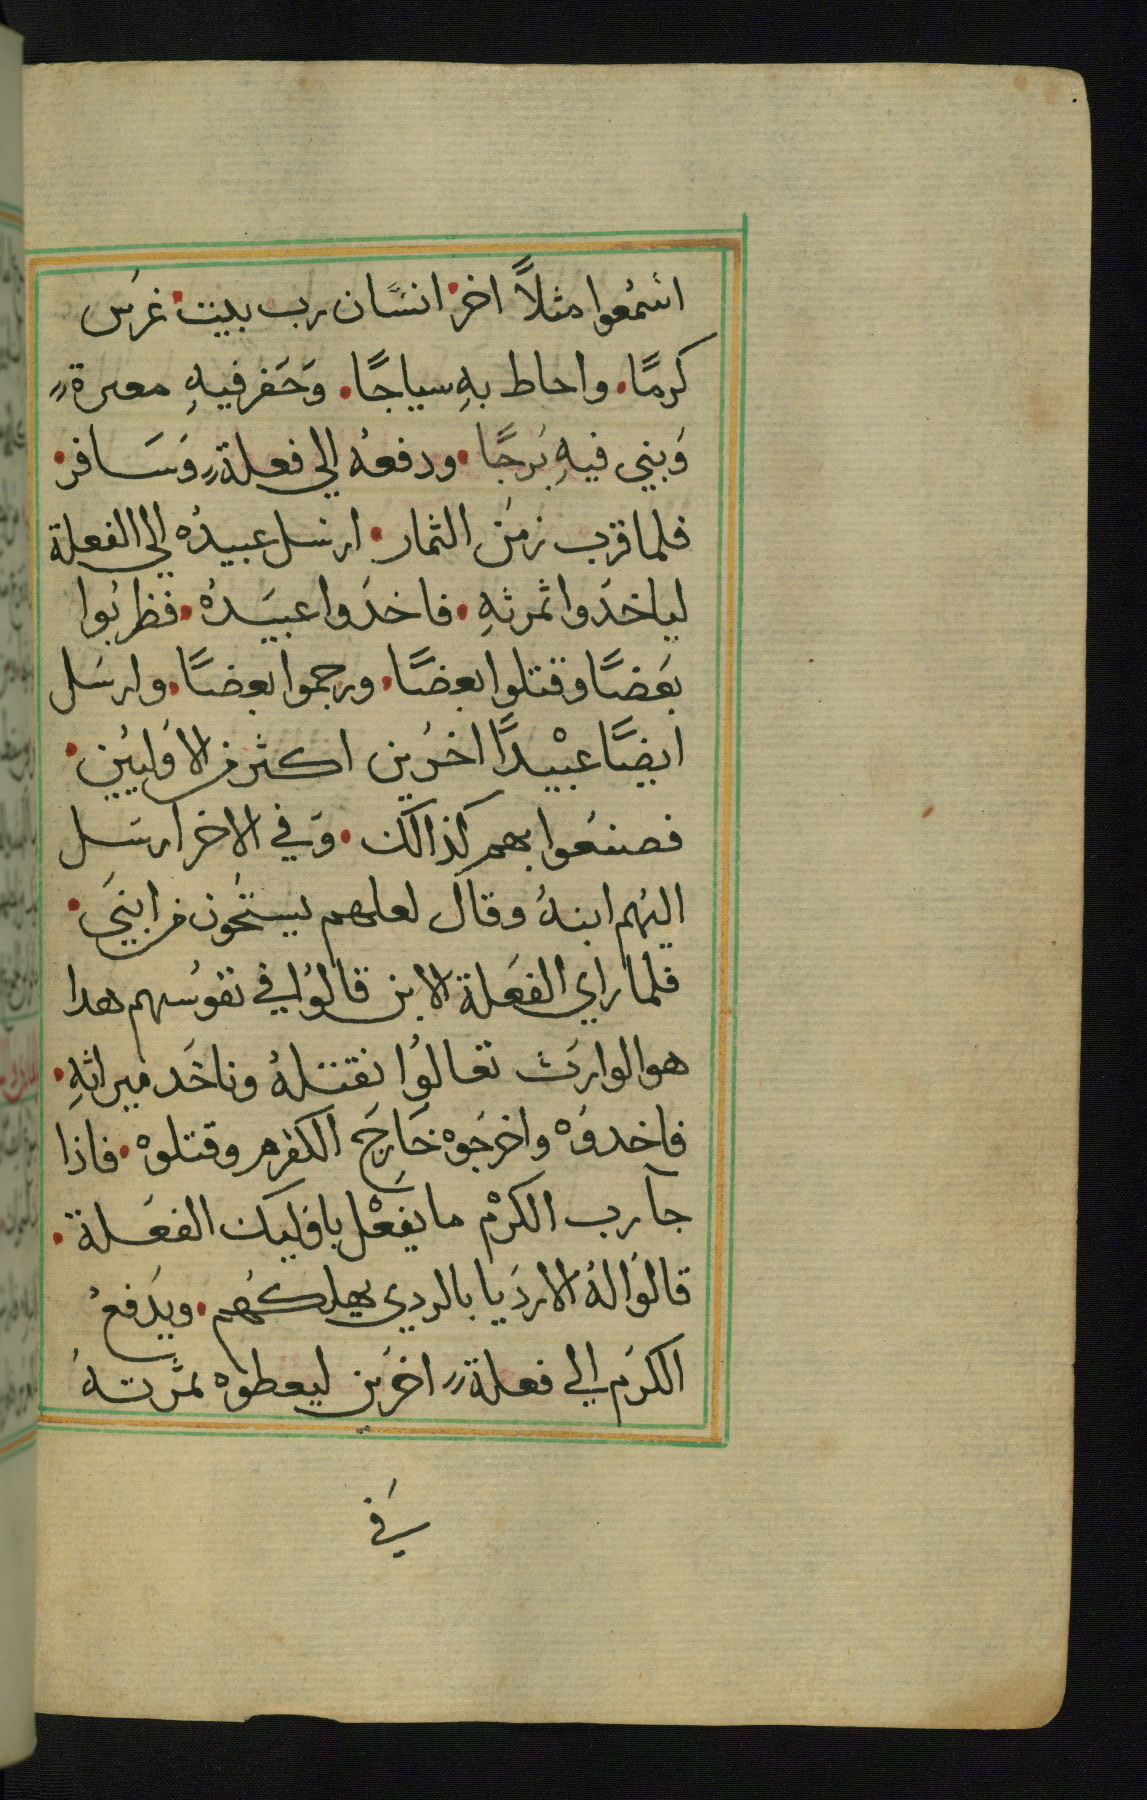 اسمعوا مثلاً اخر• انسان رب بيت• غرس
كرمًا• واحاط بهِ سياجًا• وَحَفر فيهِ معصرة
وَبني فيهِ بَرجًا• ودفعهُ الي فعلة وَسَافر•
فلما قرب زمَن الثمار• ارسل عبيدُه الي الفعلة
لياخدَوا ثمرثهِ• فاخدَوا عبيَدهُ• فظربُوا
بَعَضًا وقتلوا بعضًا• ورجموا بعضًا• وارسَل
ايضًا عبْيدًا اخرُين اكثر من الاوَليُين•
فصنعَوا بهم كذالك• وَفي الاخر ارسَل
اليُهم ابنهُ وقال لعلهم يستحَون من ابنيَ•
فلما راي الفعَلة الابن قالوُا في نفوسُهم هدا
هو الوارَث تعالوُا نقتلهُ وناخَد ميراثهِ•
فاخدوَه واخرجَوه خَارجَ الكرم وقتلوه• فاذا
جآ رب الكرْم ما يفَعْل باوَليك الفعَلة•
قالوَا لهُ الاردَيا بالردي يهلكهُم• ويدَفعُ
الكرَم الي فعلة اخرَين ليعطوه ثمَرتهُ
في